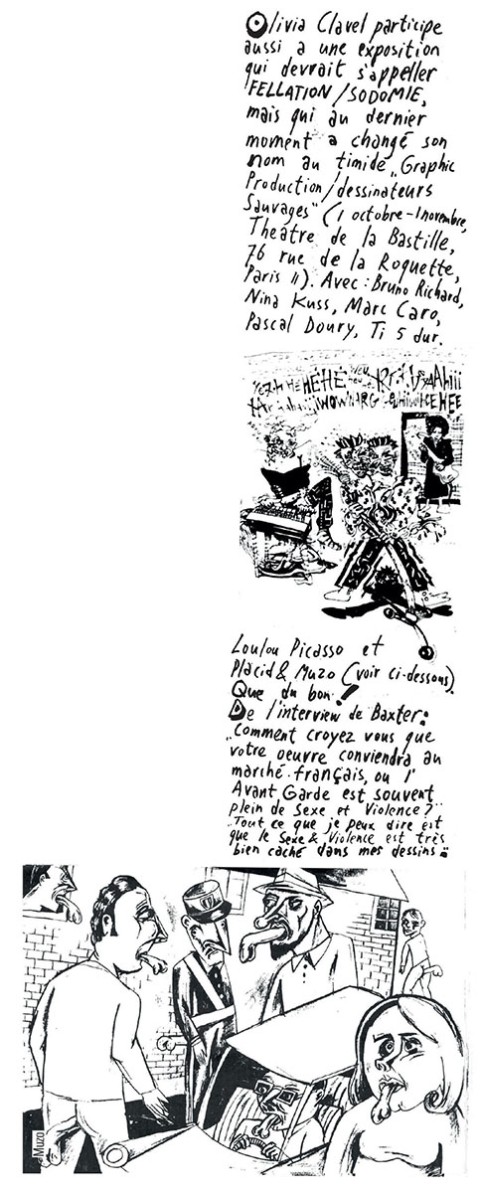 Olivia Clavel participe
aussi a une exposition
qui devrait s'appeller
"FELLATION/SODOMIE,
mais qui au dernier
moment a changé son
nom au timide „Graphic
Production/dessinateurs
Sauvages" (1 octobre-1novembre,
Theatre de la Bastille,
76 rue de la Roquette,
Paris 11). Avec: Bruno Richard,
Nina Kuss, Marc Caro,
Pascal Doury, Ti 5 dur.
HEHÉHÉ
WOWNARG
Loulou Picasso et
Placid & Muzo (voir ci-dessous).
Que du bon!
De l'interview de Baxter:
„Comment croyez vous que
votre oeuvre conviendra au
marché français, ou l'
Avant Garde est souvent
plein de Sexe et Violence?"
„Tout ce que je peux dire est
que le Sexe & Violence est très
bien caché dans mes dessins"
Muzo